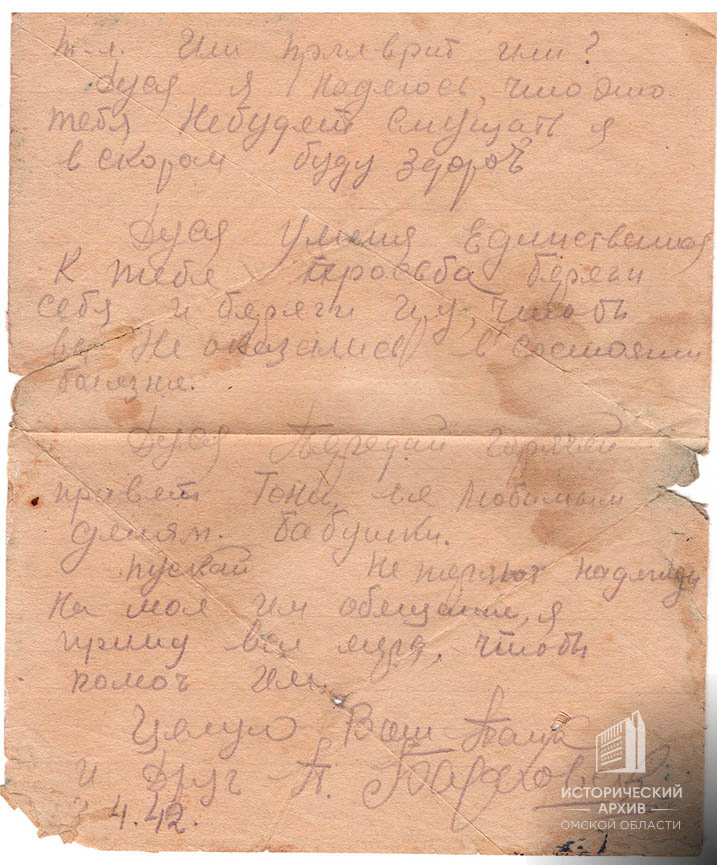 т.л. Или пргл врит или?
Дуся я надеюсь, что это
тебя небудет смущать я
в скором буду здоров
Дуся Единственная
К тебе просьба беряги
себя и беряги их, чтобы
вы не оказались в состоянии
Дуся передай горячей
привет Тони, ее любимым
детям. бабушки.
пускай не теряют надежды
на моя им обещание, я
приму вся меря, чтобы
помоч им.
Целую Ваш Папа
и друг П.
4.42.
ИСТОРИЧЕСКИЙ
АРХИВ
ОМСКОЙ ОБЛАСТИ